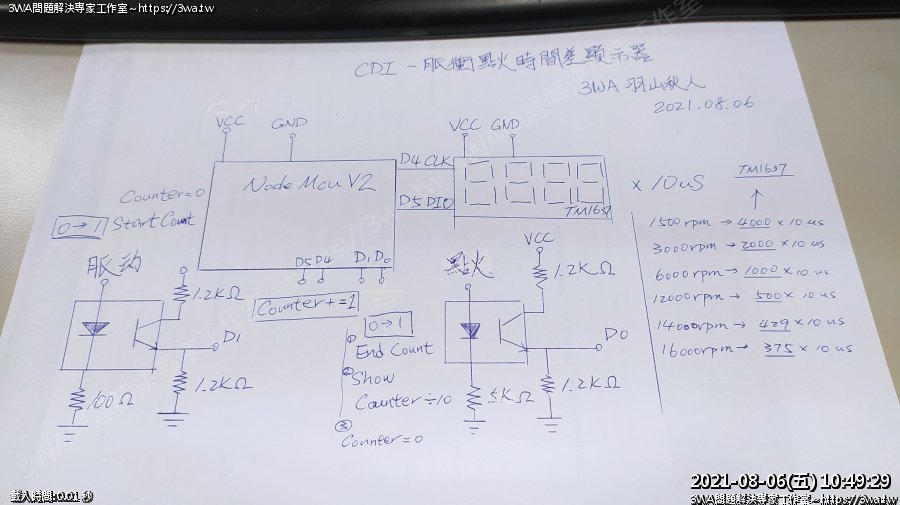 3WA問題解決專家工作室~https://3wa.tw
CDI - 脈衝點火時間差顯示器
3WA 羽山秋人
2021.08.06
VCC GND
VCC GND
Counter=0
0→1 Start Count
Node Mcu V2
D4 CLK
D5 DIO
TM1637
x 10us
TM1637
D5 D4 D1 D0
Counter+=1
脈动
1.2KΩ
D1
100Ω
1.2KΩ
0→1
① End Count
② Show
Counter÷10
③
Counter=0
點火
VCC
1.2KΩ
D0
5KΩ
1.2KΩ
1500rpm → 4000 x 10 us
3000rpm → 2000 x 10 us
6000rpm → 1000 x 10 us
12000rpm → 500 x 10 us
14000rpm → 429 x 10 us
16000rpm → 375 x 10 us
載入時間:0.01 秒
2021-08-06(五) 10:49:29
3WA問題解決專家工作室~https://3wa.tw